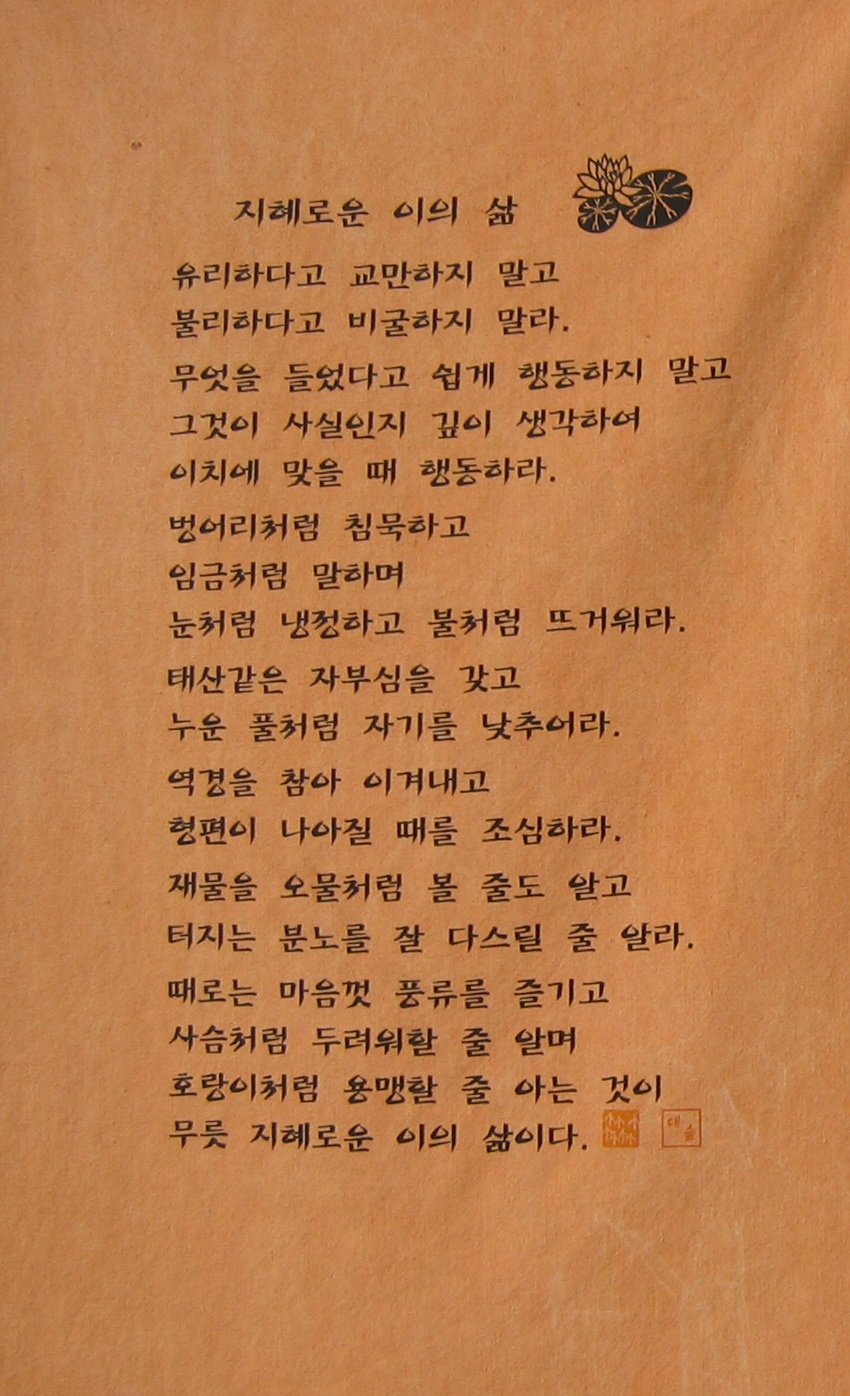 지혜로운 이의 삶
유리하다고 교만하지 말고
불리하다고 비굴하지 말라.
무엇을 들었다고 쉽게 행동하지 말고
그것이 사실인지 깊이 생각하여
이치에 맞을 때 행동하라.
벙어리처럼 침묵하고
임금처럼 말하며
눈처럼 냉정하고 불처럼 뜨거워라.
태산같은 자부심을 갖고
누운 풀처럼 자기를 낮추어라.
역경을 참아 이겨내고
형편이 나아질 때를 조심하라.
재물을 오물처럼 볼 줄도 알고
터지는 분노를 잘 다스릴 줄 알라.
때로는 마음껏 풍류를 즐기고
사슴처럼 두려워할 줄 알며
호랑이처럼 용맹할 줄 아는 것이
무릇 지혜로운 이의 삶이다.